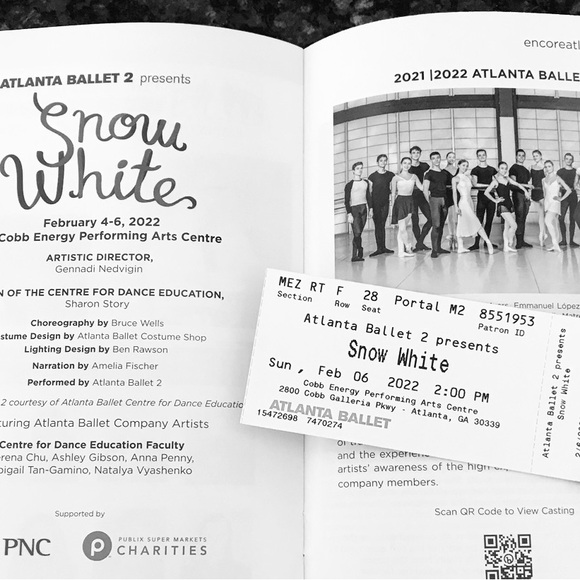 ATLANTA BALLET 2 presents
Snow
White
February 4-6, 2022
Cobb Energy Performing Arts Centre
ARTISTIC DIRECTOR,
Gennadi Nedvigin
N OF THE CENTRE FOR DANCE EDUCATION,
Sharon Story
Choreography by Bruce Wells
stume Design by Atlanta Ballet Costume Shop
Lighting Design by Ben Rawson
Narration by Amelia Fischer
Performed by Atlanta Ballet 2
2 courtesy of Atlanta Ballet Centre for Dance Educatio
turing Atlanta Ballet Company Artists
Centre for Dance Education Faculty
rena Chu, Ashley Gibson, Anna Penny,
bigail Tan-Gamino, Natalya Vyashenko
Supported by
PNC
PUBLIX SUPER MARKETS
CHARITIES
encoreatl
2021 |2022 ATLANTA BALLE
Emmanuel López
MEZ RT F 28 Portal M2 8551953
Section Row Seat Patron ID
Atlanta Ballet 2 presents
Snow White
Sun, Feb 06 2022 2:00 PM
Cobb Energy Performing Arts Centre
2800 Cobb Galleria Pkwy - Atlanta, GA 30339
ATLANTA BALLET
15472698 7470274
Atlanta Ballet 2 presents
Snow White
and the experien
artists' awareness of the hig
company members.
Scan QR Code to View Casting